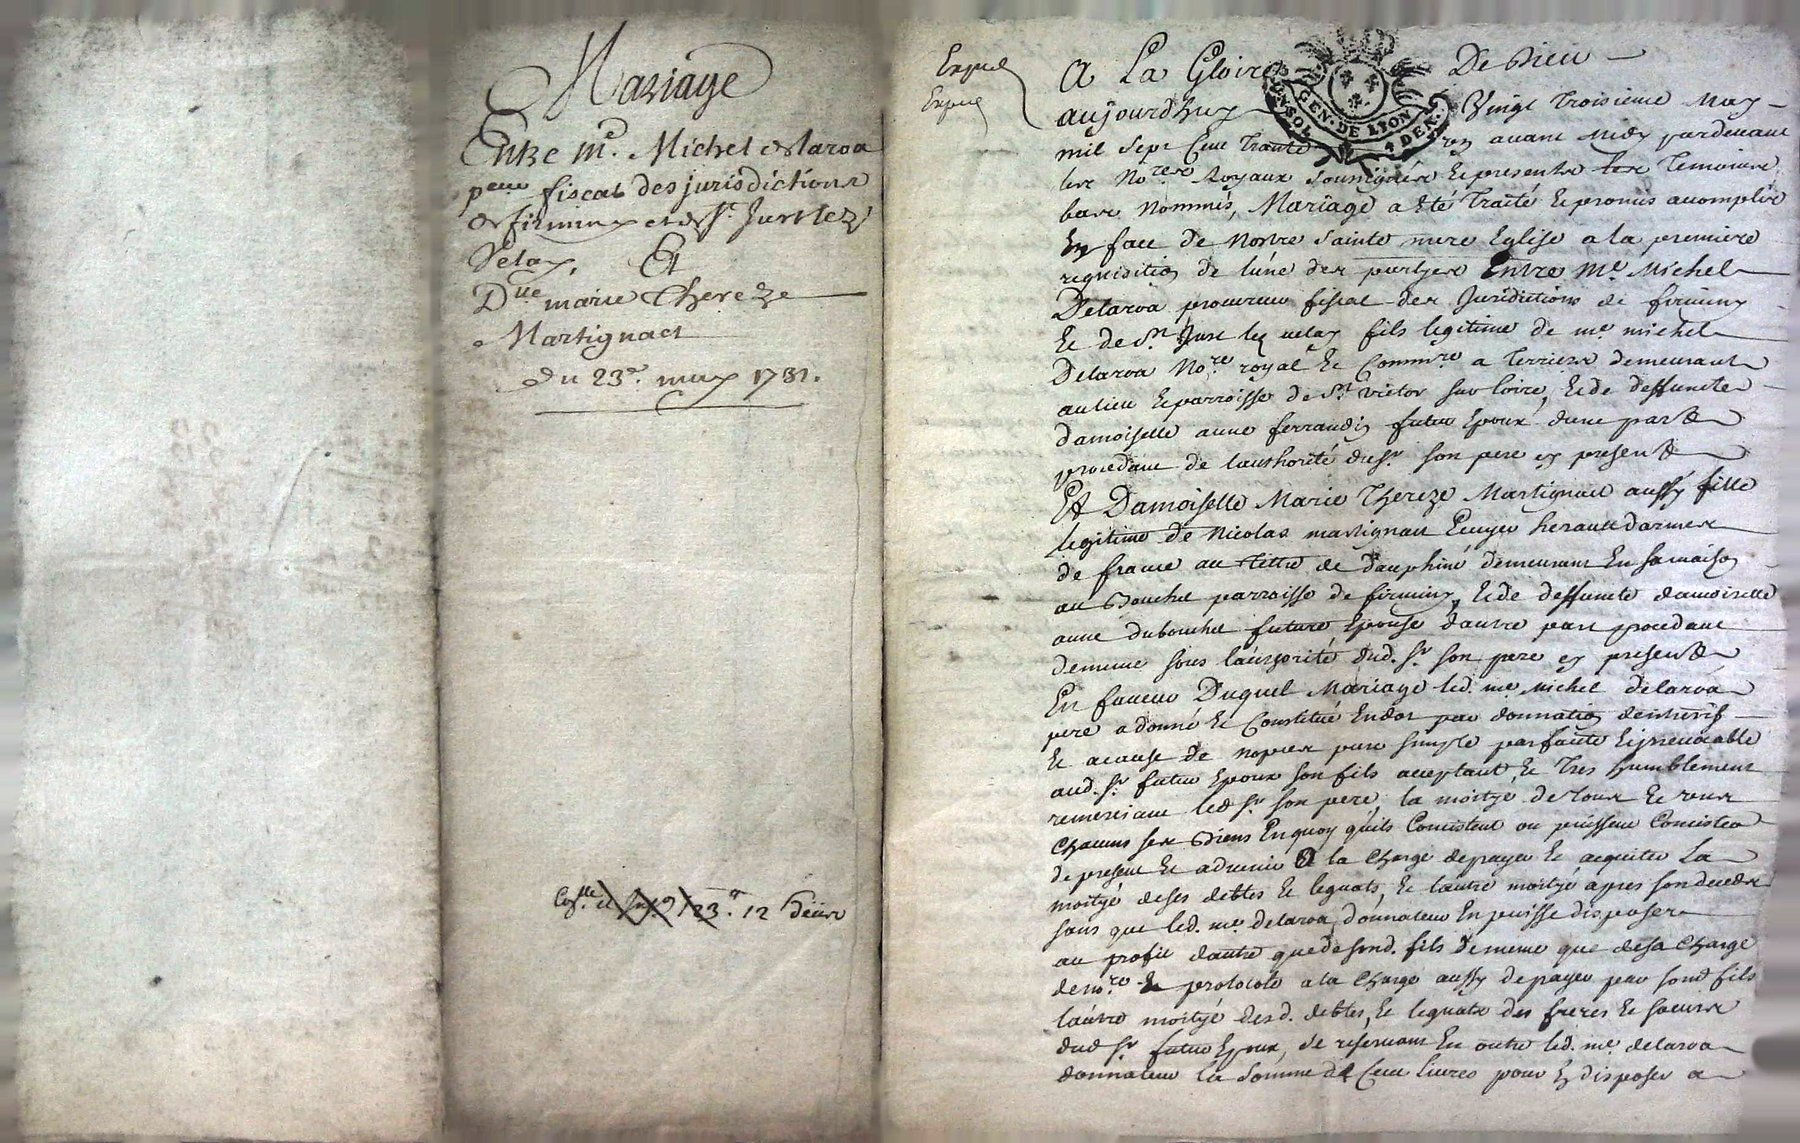 Mariage
Entre me. Michel delaroa
fiscal des jurisdictions
de firminy et de st. Just lez
velay, Et
Dlle marie Thereze
Martignact
du 23e. may 1731.
12 Xbre
Expié
Expié
A La Gloire De Dieu
GEN. DE LYON
4 DEN.
aujourdhuy Vingt Troisieme May
mil sept Cent Trante un avant midy pardevant
les Nores. Royaux soussignés Et presents les Temoins
bas Nommés, Mariage a été Traité Et promis accomplir
En face de nostre sainte mere Eglise a la premiere
requisition de lune des partyes Entre Me Michel
Delaroa procureur fiscal des Juridictions de firminy
Et de St. Just les velay fils legitime de me. michel
Delaroa Nore. royal Et Commre a Terriers demeurant
au lieu Et parroisse de St. victor sur loire, Et de deffuncte
damoiselle anne ferrandin futur Epoux dune part
procedant de lauthorité dud sr. son pere icy present
Et Damoiselle Marie Thereze Martignact aussy fille
legitime de Nicolas martignact Ecuyer heraut darmes
de france au tittre de dauphiné demeurant En sa maison
au Bouchet parroisse de firminy, Et de deffuncte damoiselle
anne dubouchet future Epouse dautre part procedant
demême sous lauthorité dud. sr. son pere icy present
En faveur Duquel Mariage led. me michel delaroa
pere a donné Et Constitué En dot par donnation dentrevifs
Et a cause de nopces pure simple parfaite Et irrevocable
aud. sr. futur Epoux son fils acceptant, Et Tres humblement
remerciant led sr. son pere, la moityé de Tous Et Uns
Chacuns ses Biens En quoy quils Consistent ou puissent Consister
de present Et advenir A la Charge de payer Et acquiter La
moityé de ses debtes Et leguats, Et lautre moityé apres son deceds
sans que led. me. delaroa donnateur En puisse disposer
au profit dautre que de sond. fils De meme que de sa Charge
de nore. Et protocole a la Charge aussy de payer par sond fils
lautre moityé desd. debtes, Et leguats des freres Et soeurs
dud sr. futur Epoux, se reservant En outre led. me. delaroa
donnateur la Somme de Cent livres pour En disposer a